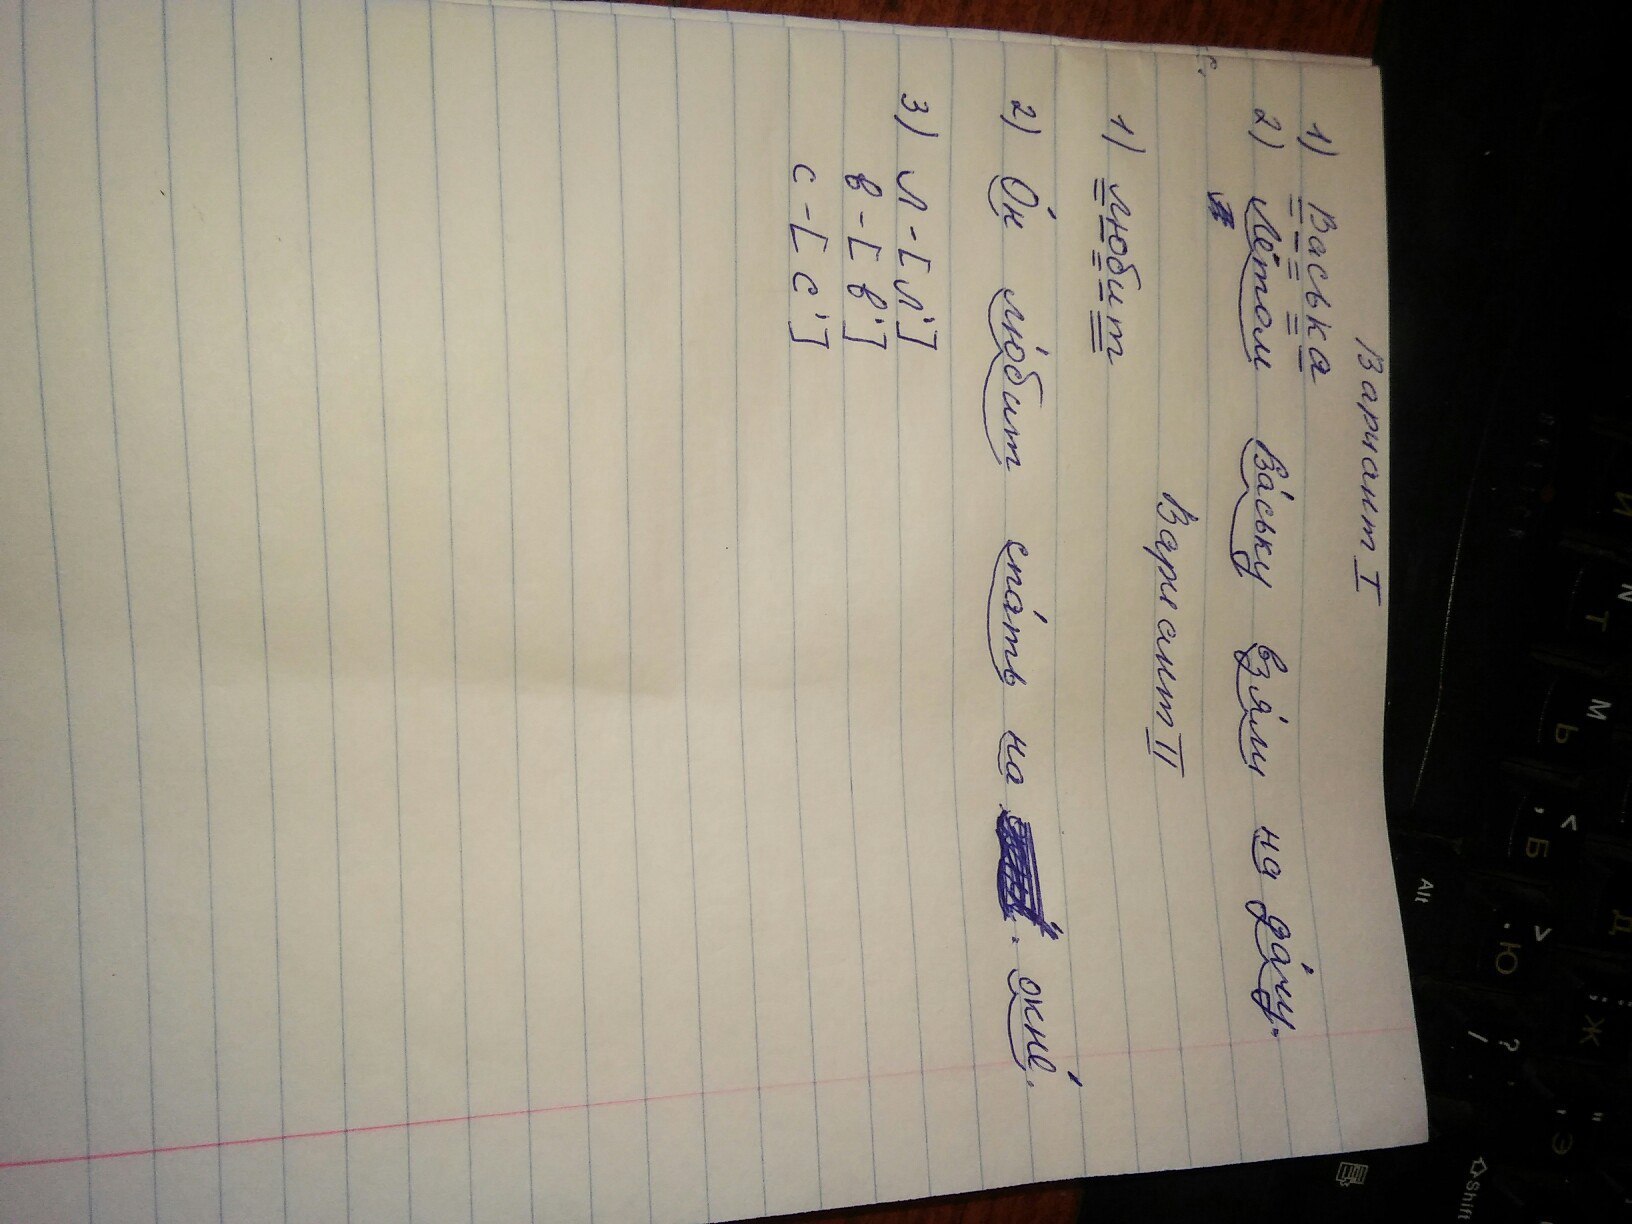 Вариант I
1) Васька
2) Ле́том Ва́ську взя́ли на да́чу.
Вариант II
1) любит
2) О́н лю́бит спа́ть на . окне́.
3) Л - [л']
в - [в']
с - [с']
N
И
Т
M
Ь
<
,
Б
Alt
>
.
Ю
Д
:
;
Ж
?
/
"
'
Э
Shift